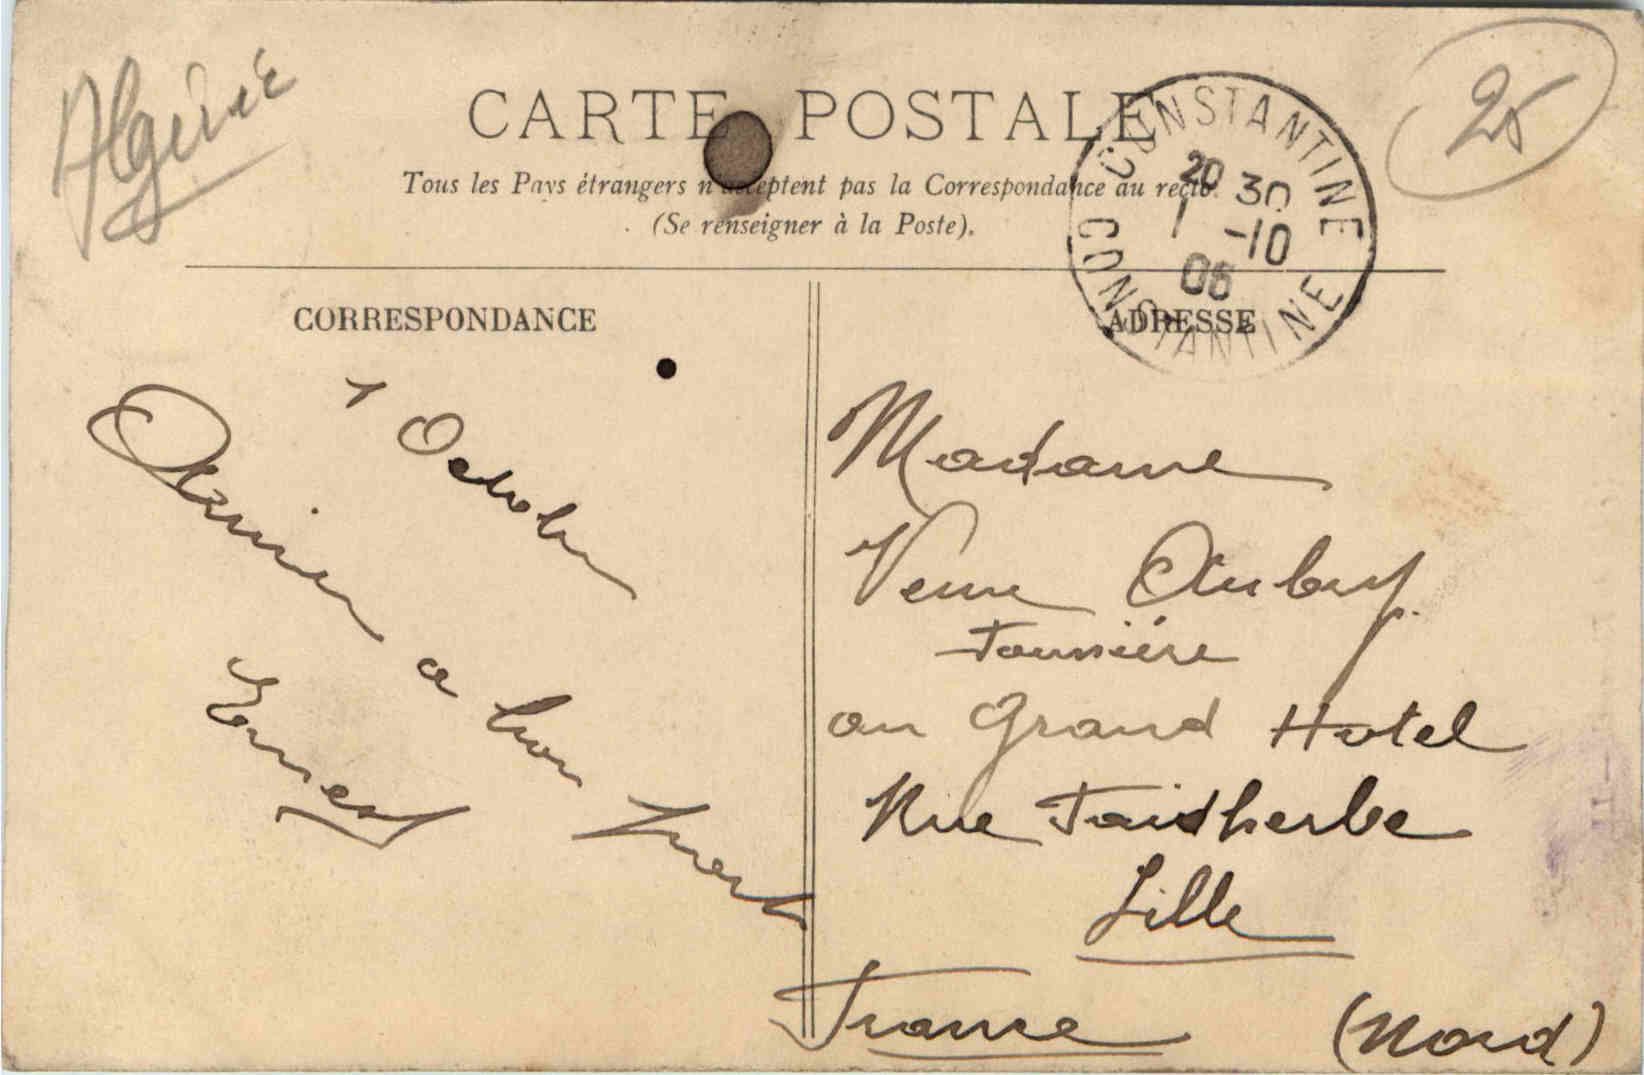 Algérie
25
CARTE POSTALE
Tous les Pays étrangers n'acceptent pas la Correspondance au recto.
(Se renseigner à la Poste).
CONSTANTINE
20 30
1 -10
06
CONSTANTINE
CORRESPONDANCE
ADRESSE
1 Octobre
Arrivé a bon
Ernest
Madame
Veuve Aubry
au Grand Hotel
Rue Faidherbe
Lille
France (Nord)